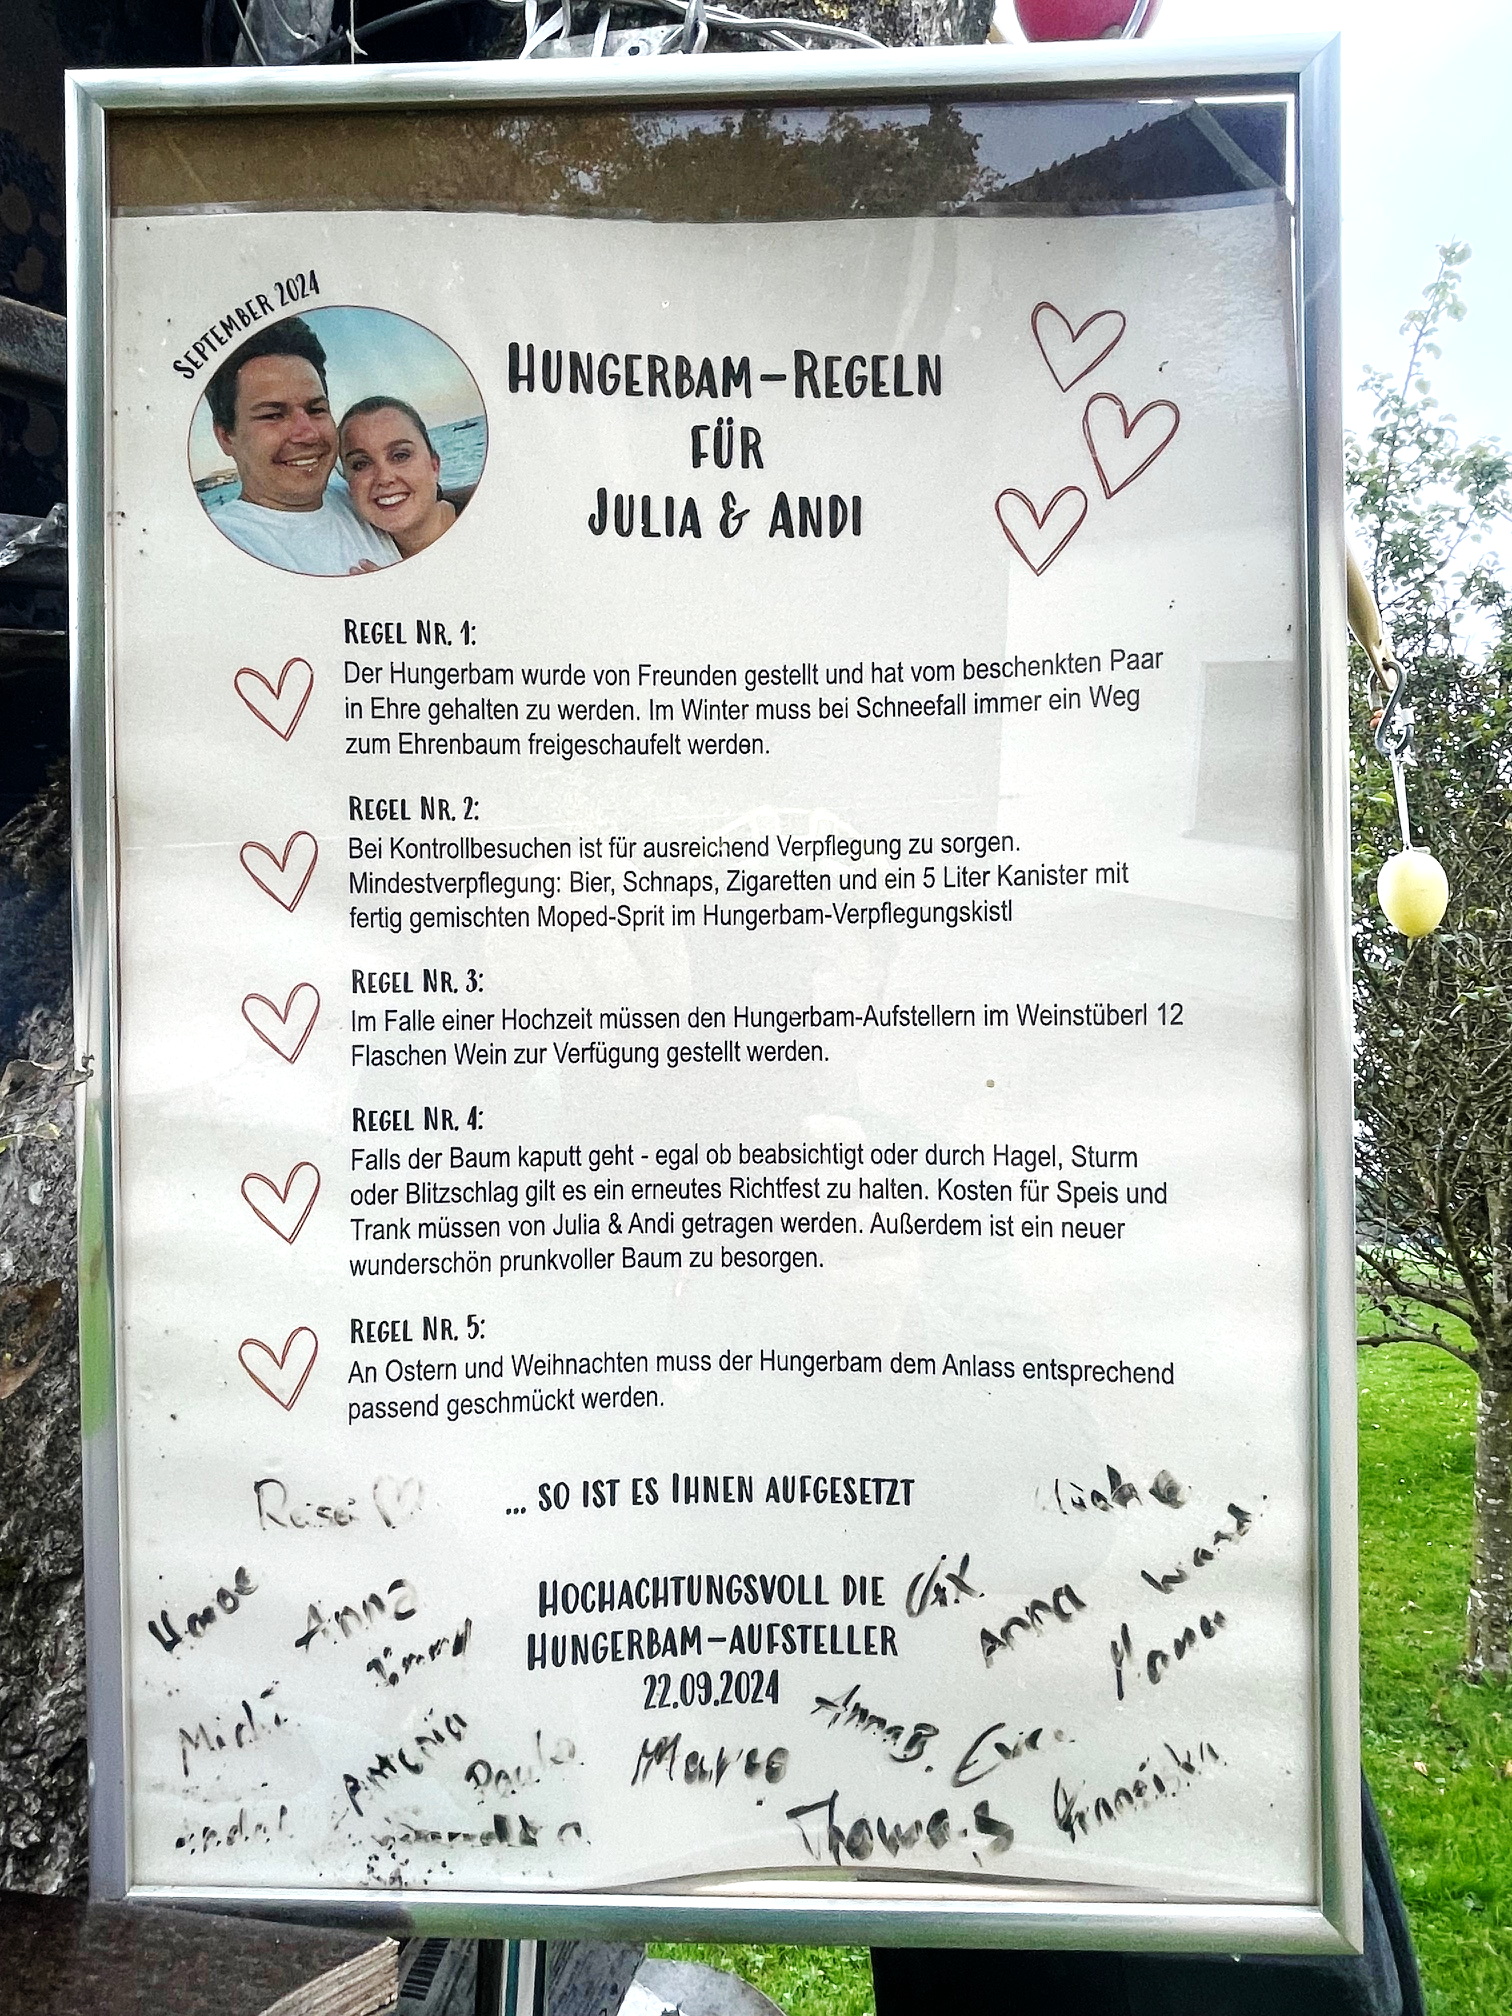 SEPTEMBER 2024
HUNGERBAM-REGELN
FÜR
JULIA & ANDI
REGEL NR. 1:
Der Hungerbam wurde von Freunden gestellt und hat vom beschenkten Paar
in Ehre gehalten zu werden. Im Winter muss bei Schneefall immer ein Weg
zum Ehrenbaum freigeschaufelt werden.
REGEL NR. 2:
Bei Kontrollbesuchen ist für ausreichend Verpflegung zu sorgen.
Mindestverpflegung: Bier, Schnaps, Zigaretten und ein 5 Liter Kanister mit
fertig gemischten Moped-Sprit im Hungerbam-Verpflegungskistl
REGEL NR. 3:
Im Falle einer Hochzeit müssen den Hungerbam-Aufstellern im Weinstüberl 12
Flaschen Wein zur Verfügung gestellt werden.
REGEL NR. 4:
Falls der Baum kaputt geht - egal ob beabsichtigt oder durch Hagel, Sturm
oder Blitzschlag gilt es ein erneutes Richtfest zu halten. Kosten für Speis und
Trank müssen von Julia & Andi getragen werden. Außerdem ist ein neuer
wunderschön prunkvoller Baum zu besorgen.
REGEL NR. 5:
An Ostern und Weihnachten muss der Hungerbam dem Anlass entsprechend
passend geschmückt werden.
... SO IST ES IHNEN AUFGESETZT
HOCHACHTUNGSVOLL DIE
HUNGERBAM-AUFSTELLER
22.09.2024
Anna
Anna
Manu
Michi
Antonia
Paula
Marco
Anna B.
Thomas
Franziska